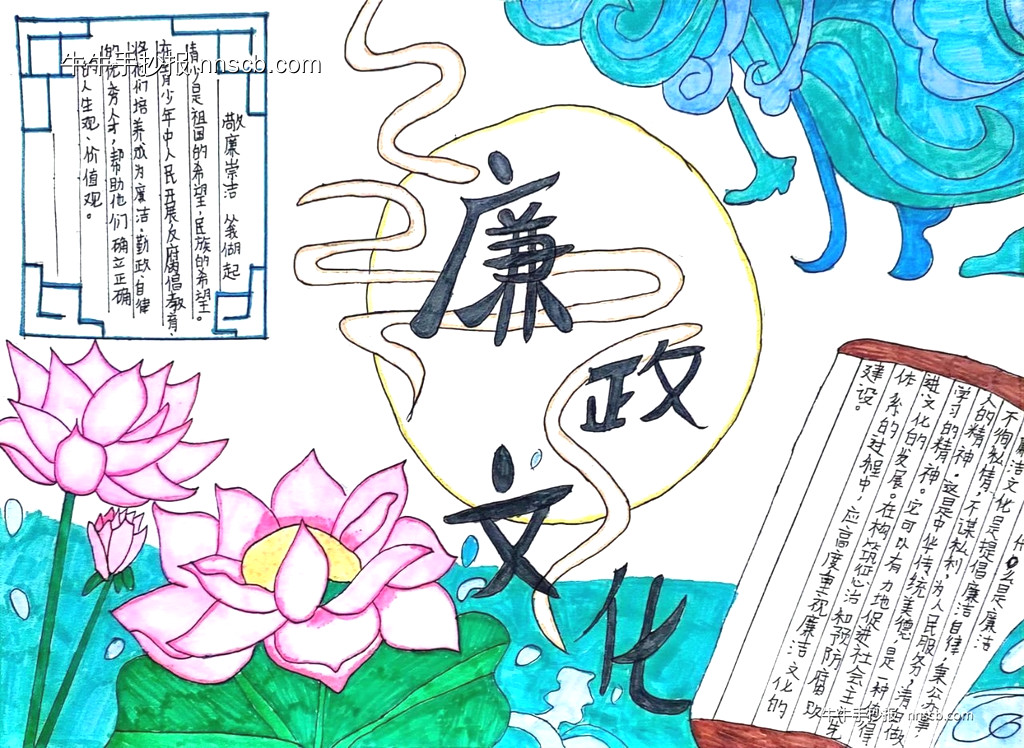 牛牛手抄报 nnscb.com
敬廉崇洁
是祖国的希望,民族的希望。
少年中人民开展反腐倡教育,
将他们培养成为廉洁、勤政、自律
的优秀人才,帮助他们确立正确
的人生观、价值观。
廉
政
文
化
什么是廉洁
廉洁文化是提倡廉洁自律,秉公办事
不徇私情,不谋私利,为人民服务,清白做
人的精神,这是中华传统美德,是一种值得
学习的精神。它可以有力地促进社会主
进文化的发展。在构筑征心治和预防腐败
体系的过程中,应高度重视廉洁文化的
建设。
牛牛手抄报 nnscb.com